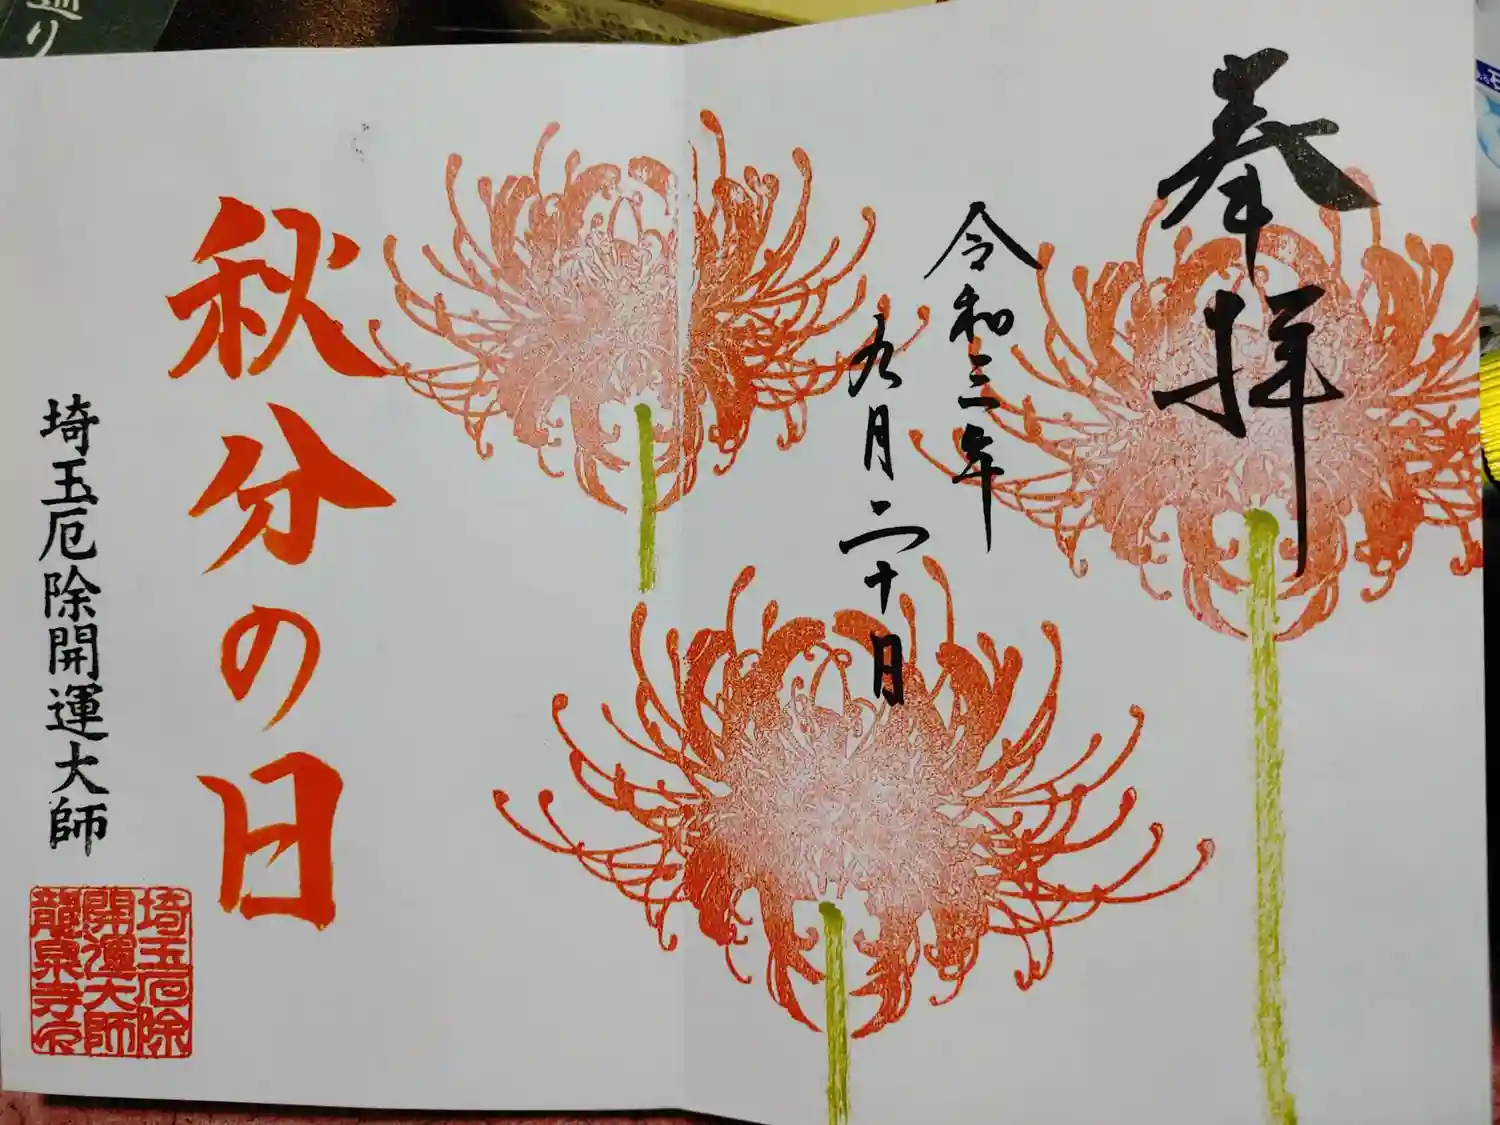 奉拝
令和三年
九月二十日
秋分の日
埼玉厄除開運大師
埼玉厄除
開運大師
龍泉寺印
巡り